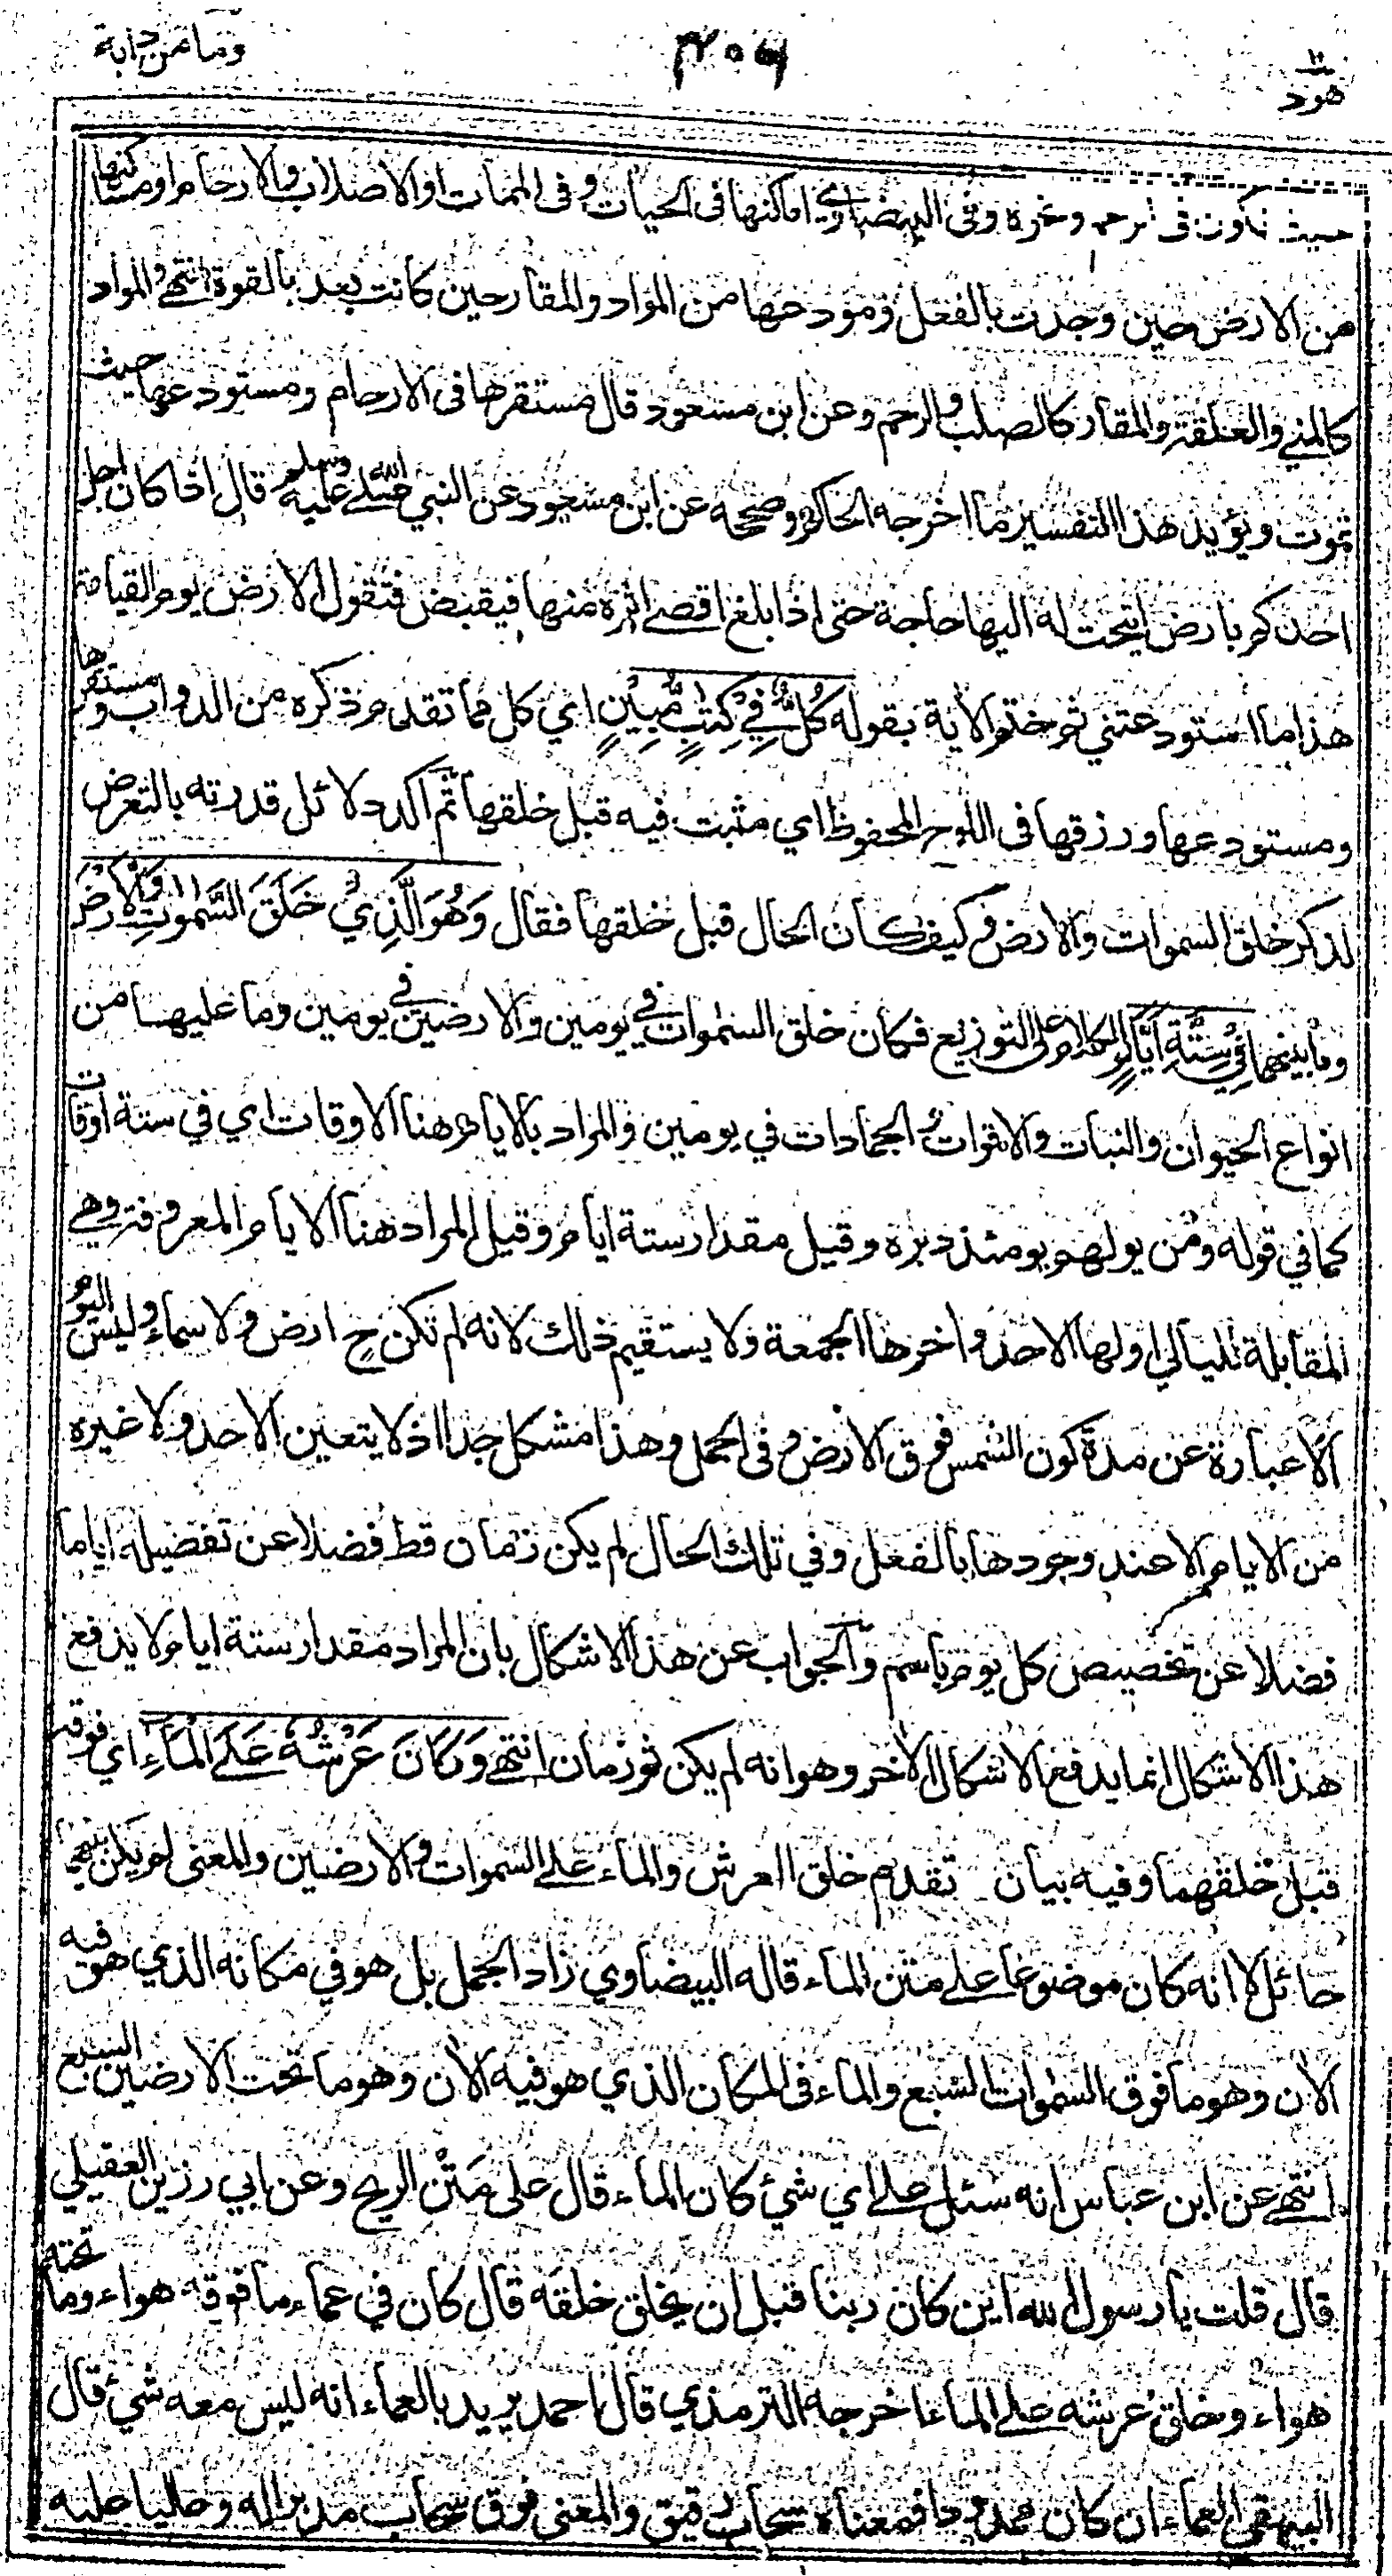 وما من دابة
٣٠٦
هود
حيث تكون في الرحم وغيره وفي البيضاوي اماكنها في الحيات وفي الممات او الاصلاب والارحام او مساكنها
من الارض حين وجدت بالفعل ومودعها من المواد والمقار حين كانت بعد بالقوة انتهى والمواد
كالمني والعلقة والمقار كالصلب والرحم وعن ابن مسعود قال مستقرها في الارحام ومستودعها حيث
تموت ويؤيد هذا التفسير ما اخرجه الحاكم وصححه عن ابن مسعود عن النبي صلى الله عليه وسلم قال اذا كان اجل
احدكم بارض اتيحت له اليها حاجة حتى اذا بلغ اقصى اثره منها فيقبض فتقول الارض يوم القيامة
هذا ما استودعتني ثم ختم الاية بقوله كُلٌّ فِيْ كِتٰبٍ مُّبِيْنٍ اي كل مما تقدم ذكره من الدواب ومستقرها
ومستودعها ورزقها في اللوح المحفوظ اي مثبت فيه قبل خلقها ثم اكد دلائل قدرته بالتعرض
لذكر خلق السموات والارض وكيف كان الحال قبل خلقها فقال وَهُوَ الَّذِيْ خَلَقَ السَّمٰوٰتِ وَالْاَرْضَ
وما بينهما فِيْ سِتَّةِ اَيَّامٍ الكلام على التوزيع فكان خلق السموات في يومين والارضين في يومين وما عليهما من
انواع الحيوان والنبات والاقوات والجمادات في يومين والمراد بالايام هنا الاوقات اي في ستة اوقات
كما في قوله ومن يولهم يومئذ دبره وقيل مقدار ستة ايام وقيل المراد هنا الايام المعروفة وهي
المقابلة لليالي اولها الاحد واخرها الجمعة ولا يستقيم ذلك لانه لم تكن ح ارض ولا سماء وليس اليوم
الا عبارة عن مدة كون الشمس فوق الارض وفي الجمل وهذا مشكل جدا اذ لا يتعين الاحد ولا غيره
من الايام الا عند وجودها بالفعل وفي تلك الحال لم يكن زمان قط فضلا عن تفصيله اياما
فضلا عن تخصيص كل يوم باسم والجواب عن هذا الاشكال بان المراد مقدار ستة ايام لا يدفع
هذا الاشكال انما يدفع الاشكال الاخر وهو انه لم يكن ثم زمان انتهى وَكَانَ عَرْشُهٗ عَلَى الْمَآءِ اي فوقه
قبل خلقهما وفيه بيان تقدم خلق العرش والماء على السموات والارضين والمعنى لم يكن بينهما
حائل لا انه كان موضوعا على متن الماء قاله البيضاوي زاد الجمل بل هو في مكانه الذي هو فيه
الان وهو ما فوق السموات السبع والماء في المكان الذي هو فيه الان وهو ما تحت الارضين السبع
انتهى عن ابن عباس انه سئل على اي شئ كان الماء قال على متن الريح وعن ابي رزين العقيلي
قال قلت يا رسول الله اين كان ربنا قبل ان يخلق خلقه قال كان في عماء ما فوقه هواء وما تحته
هواء وخلق عرشه على الماء اخرجه الترمذي قال احمد يريد بالعماء انه ليس معه شئ قال
البيهقي العماء ان كان ممدودا فمعناه سحاب رقيق والمعنى فوق سحاب مدبرا له وعاليا عليه